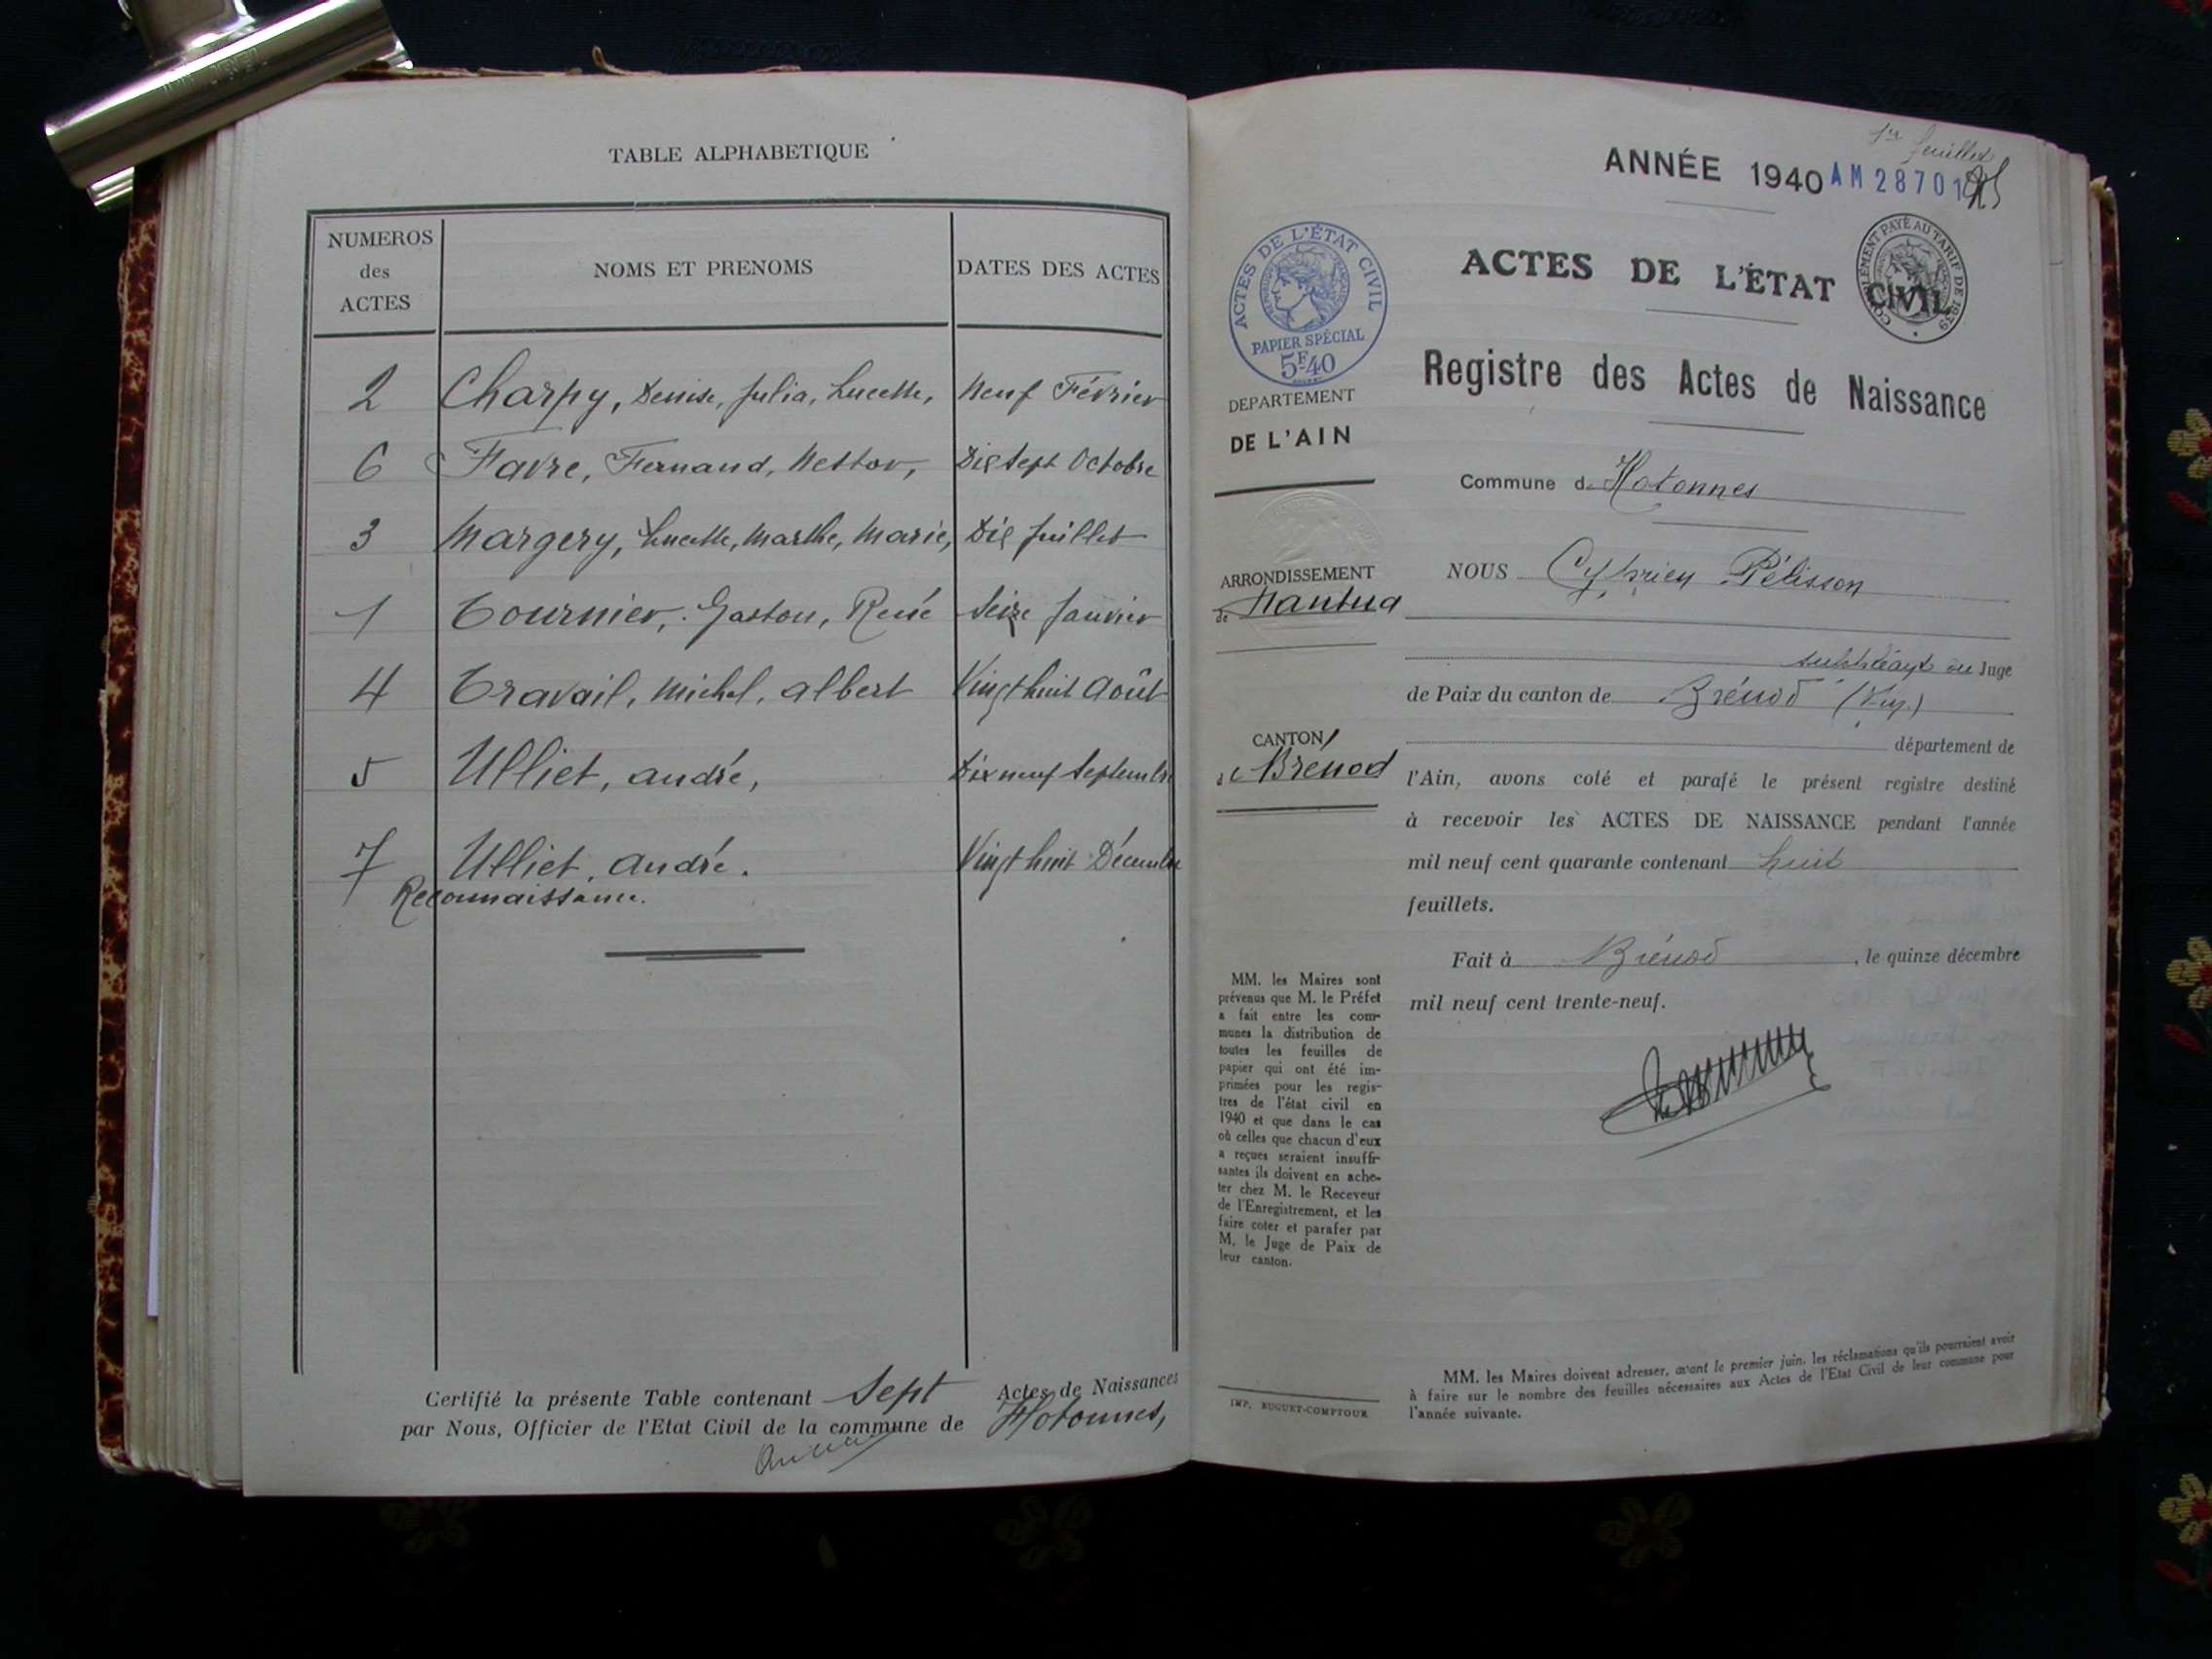 TABLE ALPHABETIQUE
NUMEROS des ACTES
NOMS ET PRENOMS
DATES DES ACTES
2 Charpy, Denise, Julia, Lucette, Neuf Février
6 Favre, Fernand, Nestor, Dix sept Octobre
3 Margery, Lucette, Marthe, Marie, Dix Juillet
1 Tournier, Gaston, René Seize Janvier
4 Travail, Michel, Albert Vingt huit Août
5 Ulliet, André, Dix neuf Septembre
7 Ulliet, André. Vingt huit Décembre
Reconnaissance.
Certifié la présente Table contenant Sept Actes de Naissances
par Nous, Officier de l'Etat Civil de la commune de Hotonnes,
1er feuillet
ANNÉE 1940 AM 28701
ACTES DE L'ÉTAT CIVIL
PAPIER SPÉCIAL
5F40
COMPLÉMENT PAYÉ AU TARIF DE 1939
ACTES DE L'ÉTAT CIVIL
Registre des Actes de Naissance
DEPARTEMENT
DE L'AIN
Commune de Hotonnes
ARRONDISSEMENT
de Nantua
CANTON
de Brénod
NOUS Cyprien Pélisson
suppléant du Juge
de Paix du canton de Brénod (Ain)
département de
l'Ain, avons coté et parafé le présent registre destiné
à recevoir les ACTES DE NAISSANCE pendant l'année
mil neuf cent quarante contenant huit
feuillets.
Fait à Brénod, le quinze décembre
mil neuf cent trente-neuf.
MM. les Maires sont
prévenus que M. le Préfet
a fait entre les com-
munes la distribution de
toutes les feuilles de
papier qui ont été im-
primées pour les regis-
tres de l'état civil en
1940 et que dans le cas
où celles que chacun d'eux
a reçues seraient insuffi-
santes ils doivent en ache-
ter chez M. le Receveur
de l'Enregistrement, et les
faire coter et parafer par
M. le Juge de Paix de
leur canton.
IMP. BUGUET-COMPTOUR
MM. les Maires doivent adresser, avant le premier juin, les réclamations qu'ils pourraient avoir
à faire sur le nombre des feuilles nécessaires aux Actes de l'Etat Civil de leur commune pour
l'année suivante.